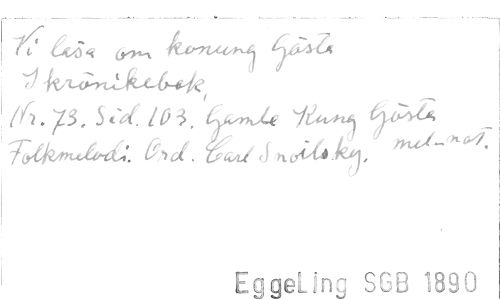 Vi läsa om konung Gösta
I krönikebok,
Nr. 73. Sid. 103. Gamle Kung Gösta
Folkmelodi. Ord. Carl Snoilsky. mel-not.
EggeLing SGB 1890